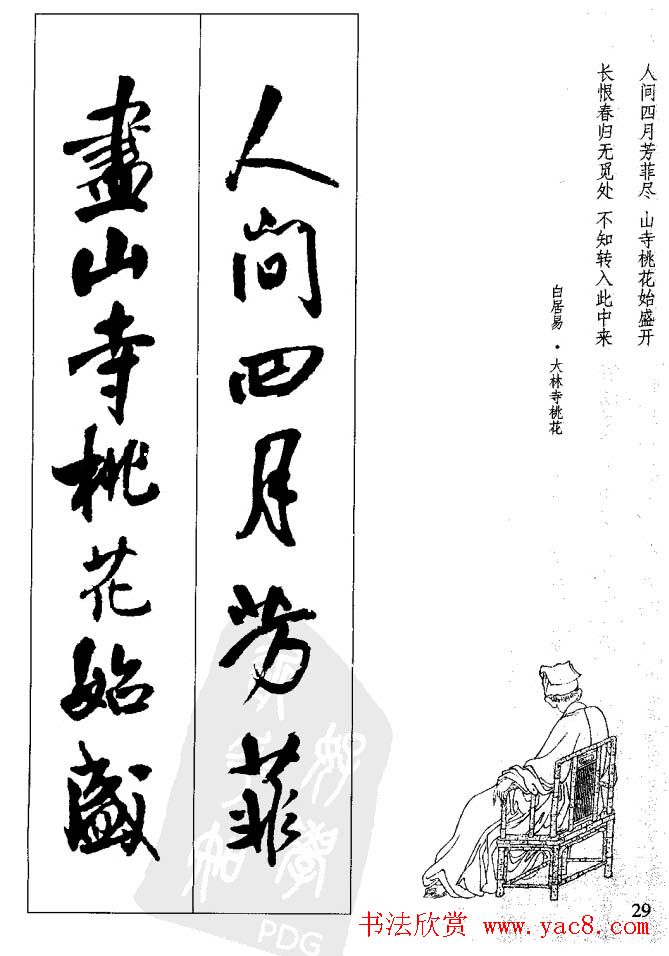 人间四月芳菲尽 山寺桃花始盛开
长恨春归无觅处 不知转入此中来
白居易·大林寺桃花
人间四月芳菲
盡山寺桃花始盛
29
书法欣赏 www.yac8.com
PDG